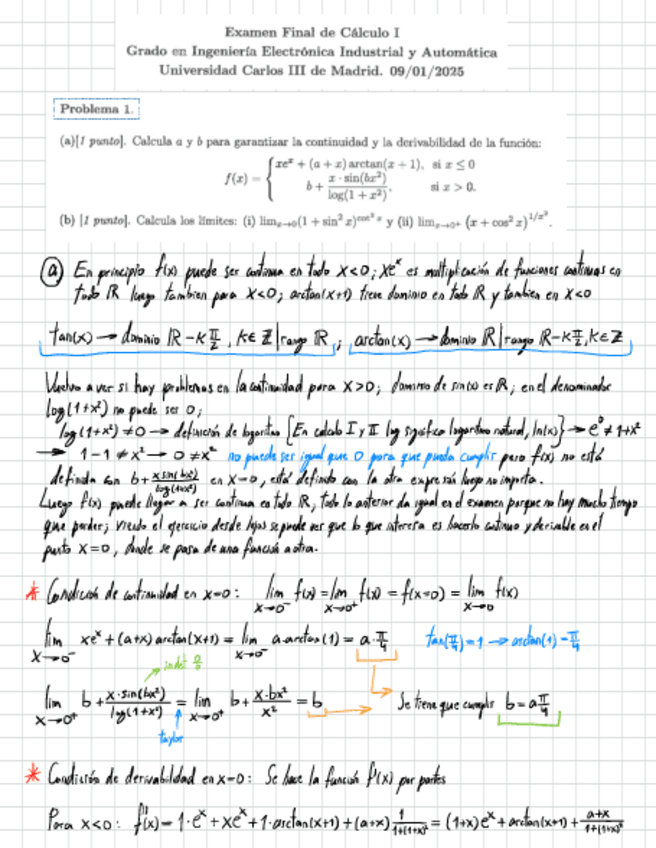 Examen Final de Cálculo I
Grado en Ingeniería Electrónica Industrial y Automática
Universidad Carlos III de Madrid. 09/01/2025
Problema 1.
(a)[1 punto]. Calcula a y b para garantizar la continuidad y la derivabilidad de la función:
f(x) = { xeˣ + (a + x) arctan(x + 1), si x ≤ 0
b + x · sin(bx²) / log(1 + x²), si x > 0.
(b) [1 punto]. Calcula los límites: (i) lim x→0 (1 + sin² x)^cot² x y (ii) lim x→0⁺ (x + cos² x)^1/x².
ⓐ En principio f(x) puede ser continua en todo x<0; xeˣ es multiplicación de funciones continuas en
todo ℝ luego tambien para x<0; arctan(x+1) tiene dominio en todo ℝ y tambien en x<0
tan(x) → dominio ℝ-kπ/2, k∈ℤ | rango ℝ; arctan(x) → dominio ℝ | rango ℝ-kπ/2, k∈ℤ
Vuelvo a ver si hay problemas en la continuidad para x>0; dominio de sin(x) es ℝ; en el denominador
log(1+x²) no puede ser 0;
log(1+x²)≠0 → definición de logaritmo [En calculo I y II log significa logaritmo natural, ln(x)] → e⁰≠1+x²
→ 1-1≠x² → 0≠x² no puede ser igual que 0 para que pueda cumplir pero f(x) no está
definida con b + xsin(bx²)/log(1+x²) en x=0, está definida con la otra expresión luego no importa.
Luego f(x) puede llegar a ser continua en todo ℝ, todo lo anterior da igual en el examen porque no hay mucho tiempo
que perder; viendo el ejercicio desde lejos se puede ver que lo que interesa es hacerlo continuo y derivable en el
punto x=0, donde se pasa de una función a otra.
* Condición de continuidad en x=0: lim x→0⁻ f(x) = lim x→0⁺ f(x) = f(x=0) = lim x→0 f(x)
lim x→0⁻ xeˣ + (a+x) arctan(x+1) = lim x→0⁻ a·arctan(1) = a·π/4 tan(π/4)=1 → arctan(1)=π/4
indet 0/0
lim x→0⁺ b + x·sin(bx²)/log(1+x²) = lim x→0⁺ b + x·bx²/x² = b Se tiene que cumplir b=aπ/4
taylor
* Condición de derivabilidad en x=0: Se hace la función f'(x) por partes
Para x<0: f'(x) = 1·eˣ + xeˣ + 1·arctan(x+1) + (a+x) 1/1+(1+x)² = (1+x)eˣ + arctan(x+1) + a+x/1+(1+x)²